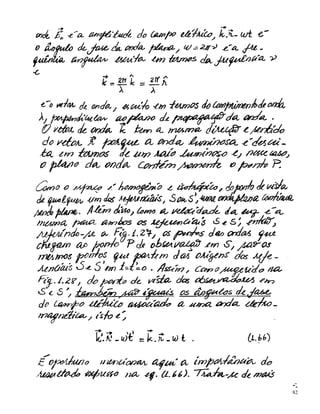 onde E⃗₀ é a amplitude do campo elétrico, k⃗.r⃗ - ωt é
o ângulo de fase da onda plana, ω = 2πν é a fre-
quência angular escrita em termos da frequência ν
e
k⃗ = 2π/λ k̂ = 2π/λ n̂
é o vetor de onda, escrito em termos do comprimento de onda
λ, perpendicular ao plano de propagação da onda.
O vetor de onda k⃗ tem a mesma direção e sentido
do vetor r⃗ porque a onda luminosa é descri-
ta em termos de um raio luminoso e, nesse caso,
o plano da onda contém somente o ponto P.
Como o espaço é homogêneo e isotrópico, do ponto de vista
de qualquer um dos referenciais, S ou S', uma onda plana continua
sendo plana. Além disso, como a velocidade da luz é a
mesma para ambos os referenciais S e S', então,
referindo-se à Fig. 1.27, as frentes das ondas que
chegam ao ponto P de observação em S, são os
mesmos pontos que partem das origens dos refe-
renciais S e S' em t=t'=0. Assim, como sugerido na
Fig. 1.28, do ponto de vista dos observadores em
S e S', também são iguais os ângulos de fase
do campo elétrico associado a uma onda eletro-
magnética, isto é,
k⃗'.r⃗' - ω't' = k⃗.r⃗ - ωt . (1.66)
É oportuno mencionar aqui a importância do
resultado expresso na eq. (1.66). Trata-se de mais
82